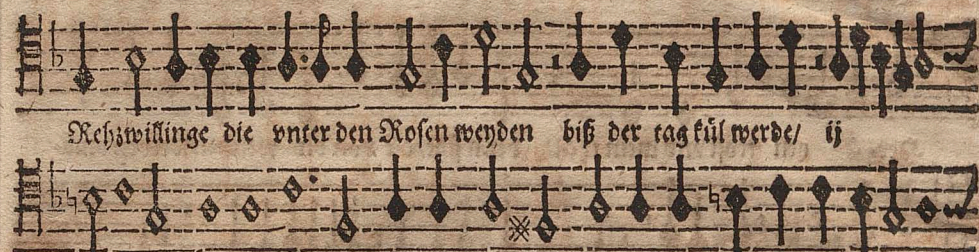 Rehzwillinge die vnter den Rosen weyden biß der tag kül werde/ ij